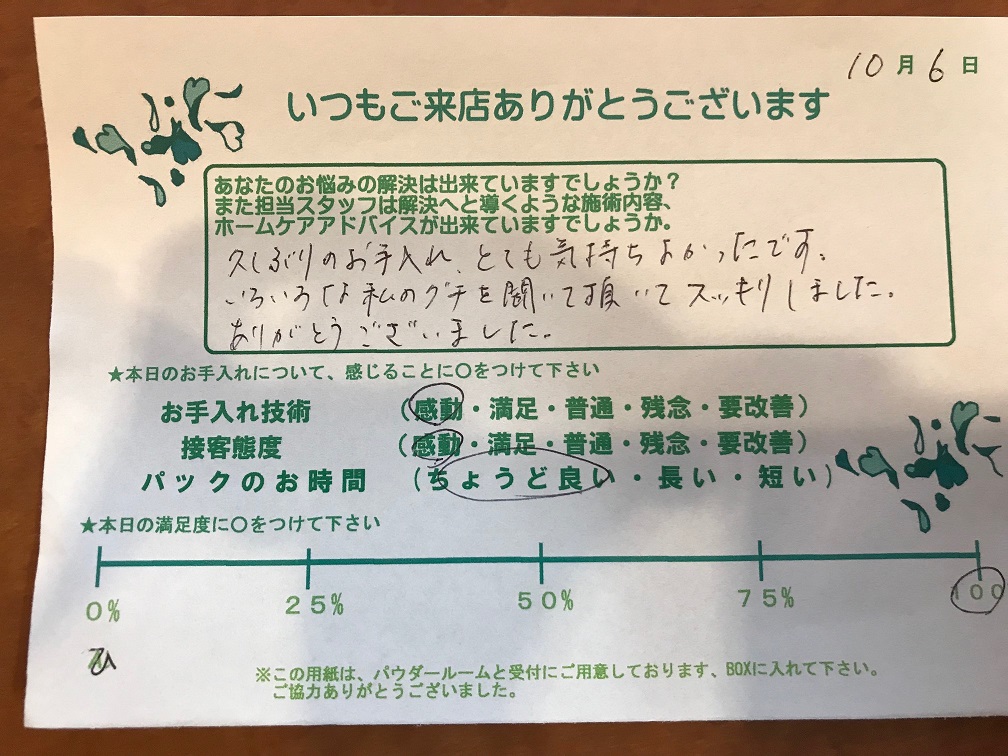 10月6日
いつもご来店ありがとうございます
あなたのお悩みの解決は出来ていますでしょうか？
また担当スタッフは解決へと導くような施術内容、
ホームケアアドバイスが出来ていますでしょうか。
久しぶりのお手入れ、とても気持ちよかったです。
いろいろな私のグチを聞いて頂いてスッキリしました。
ありがとうございました。
★本日のお手入れについて、感じることに○をつけて下さい
お手入れ技術　（感動・満足・普通・残念・要改善）
接客態度　（感動・満足・普通・残念・要改善）
パックのお時間　（ちょうど良い・長い・短い）
★本日の満足度に○をつけて下さい
0%　25%　50%　75%　100
※この用紙は、パウダールームと受付にご用意しております、BOXに入れて下さい。
ご協力ありがとうございました。